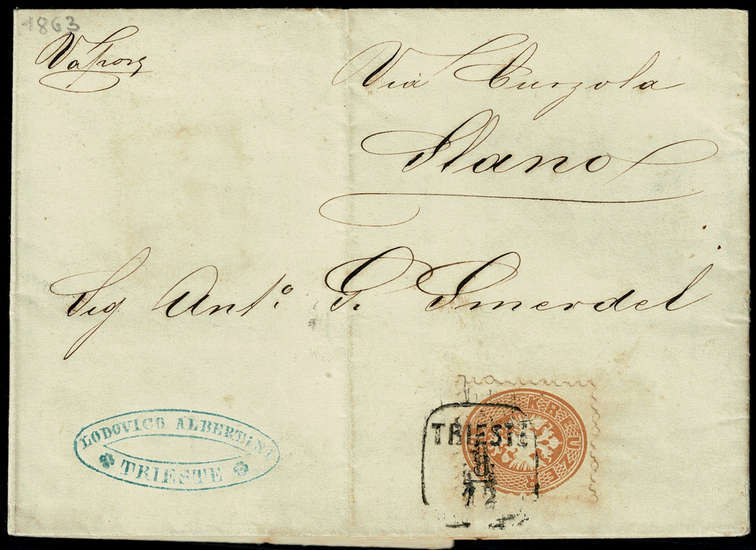 1863
Vapore
Via Curzola
Slano
Sig Antº. G. Smerdel
LODOVICO ALBERTINI
TRIESTE
TRIESTE